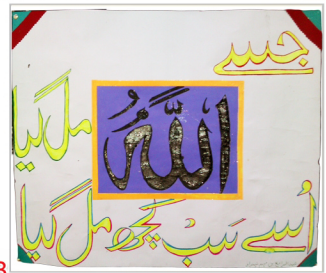 جسے
اللہُ
مل گیا
اُسے سب کچھ مل گیا
3